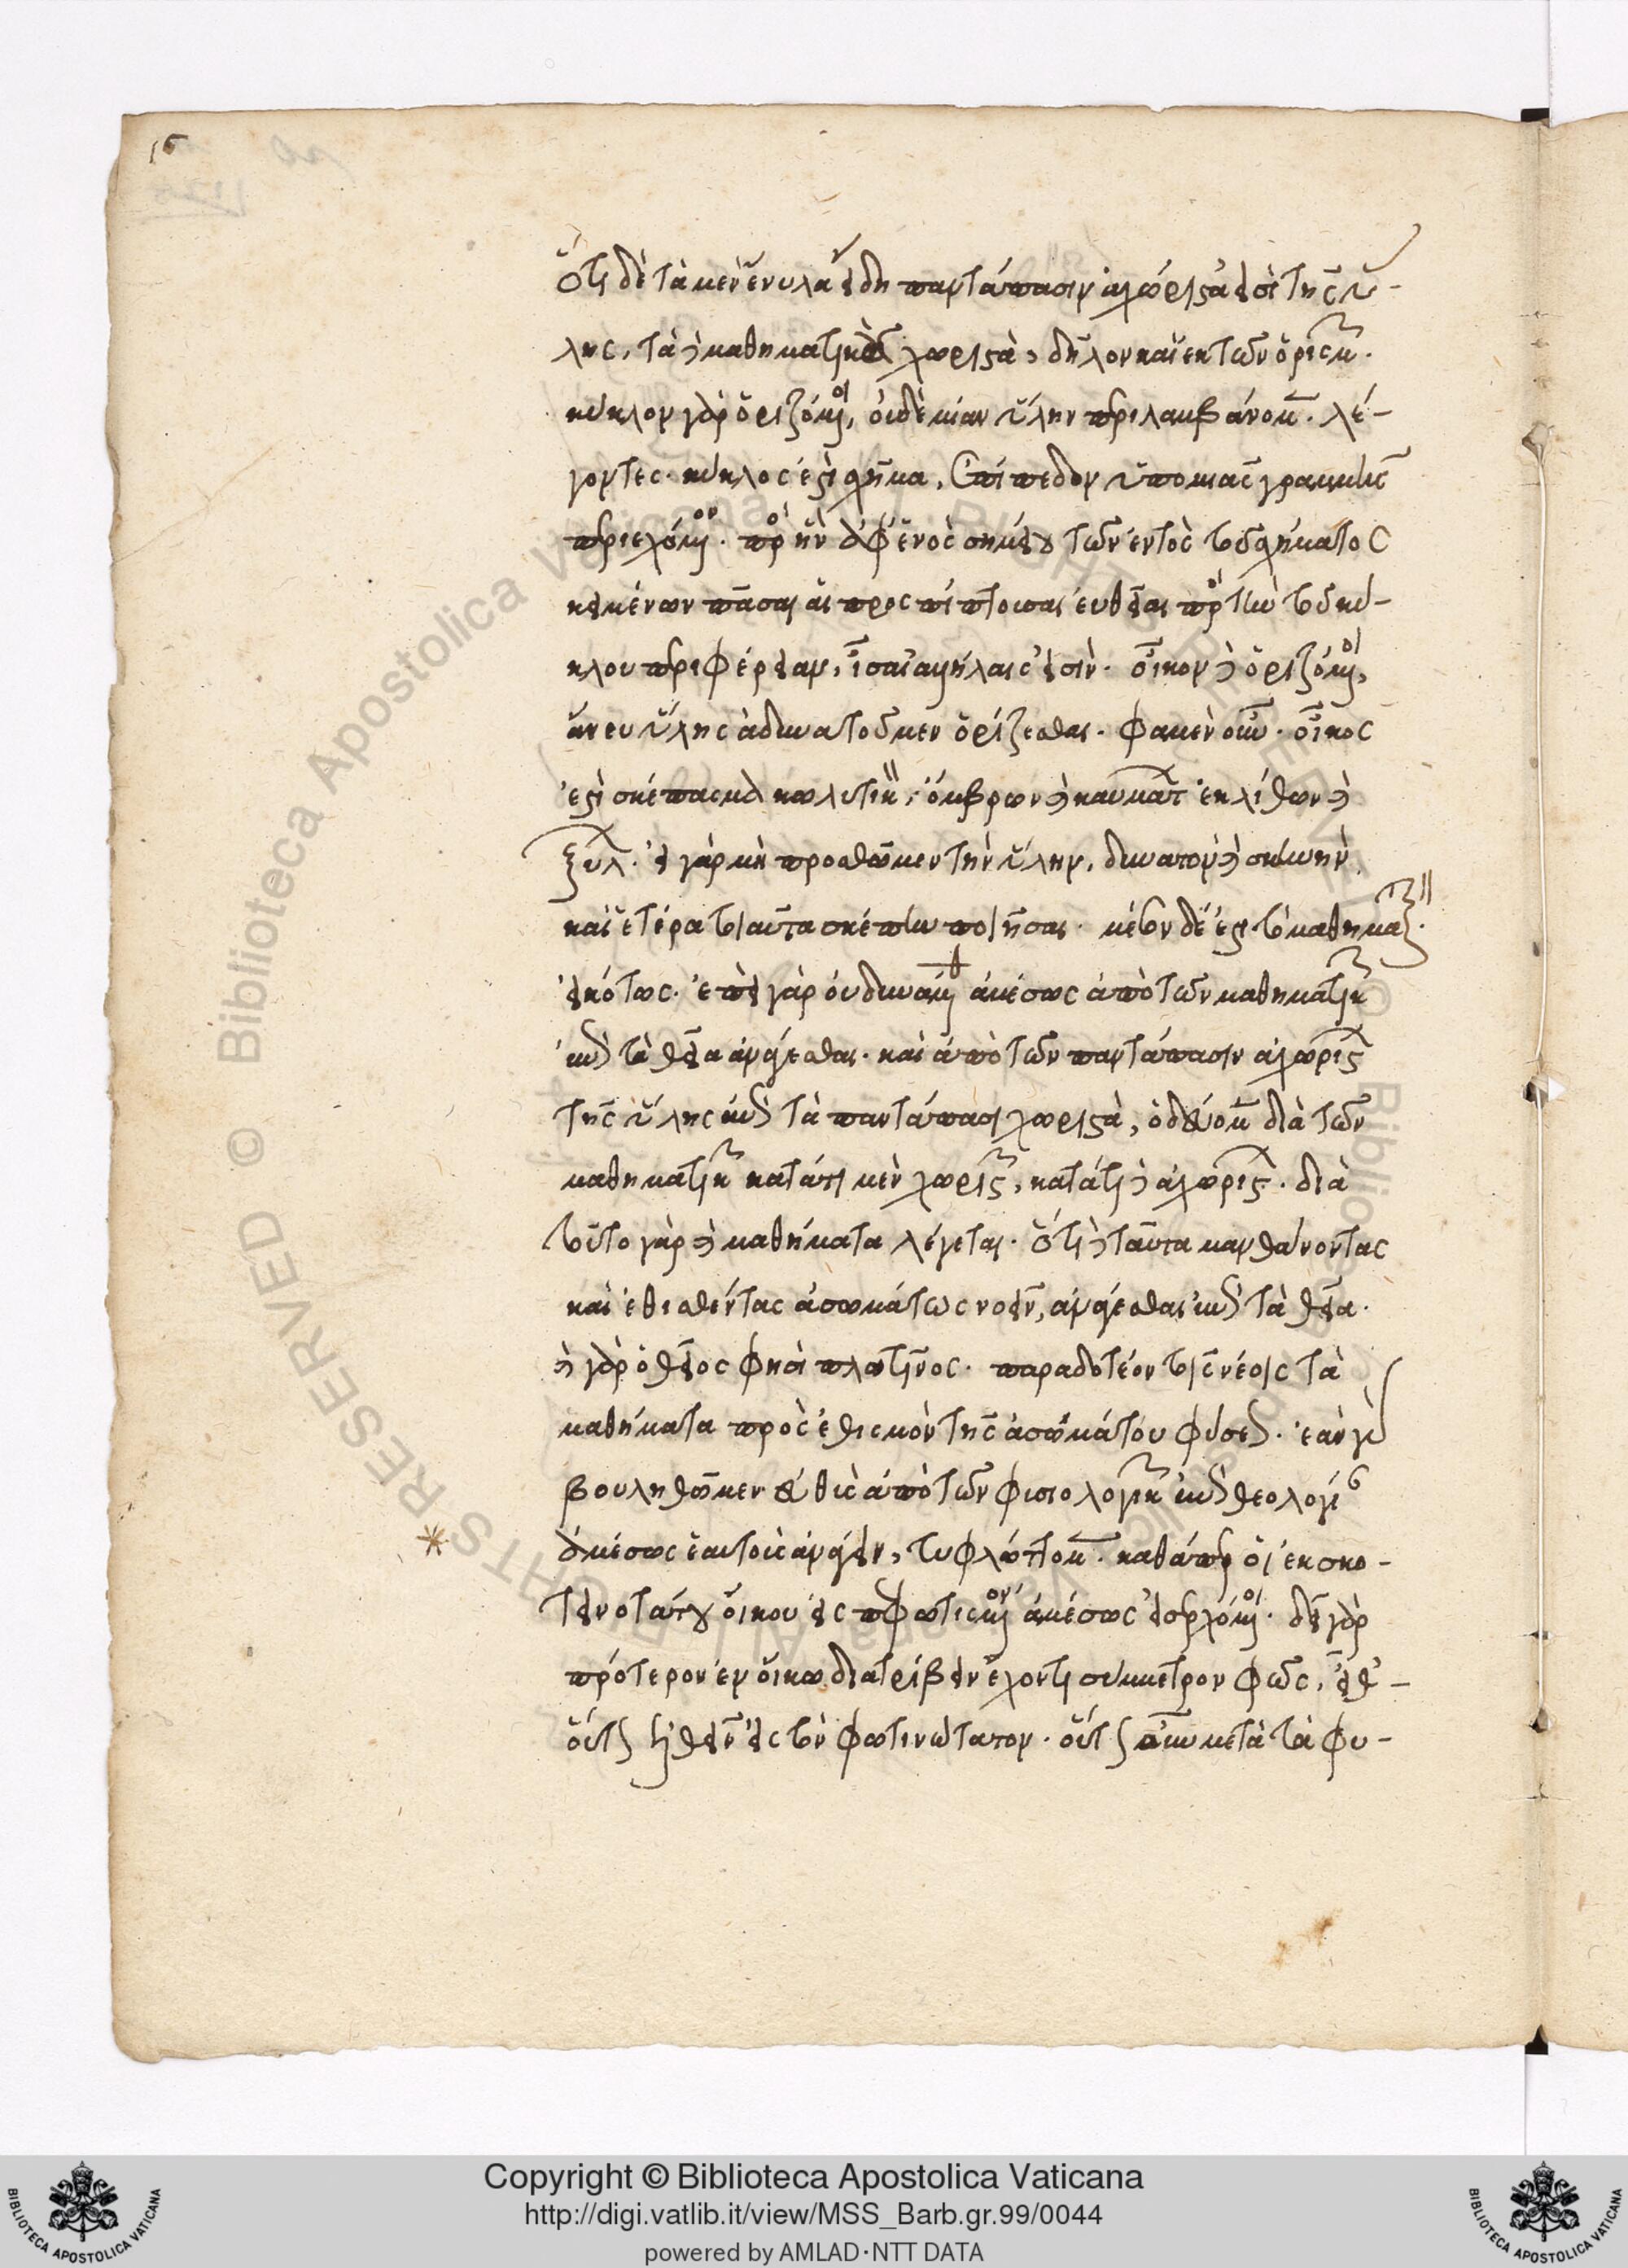 16
Ὅτι δὲ τὰ μὲν ἔνυλα εἴδη παντάπασιν ἀχώριστά εἰσι τῆς ὕ-
λης, τὰ δὲ μαθηματικὰ χωριστὰ, δῆλον καὶ ἐκ τῶν ὁρισμῶν.
κύκλον γὰρ ὁριζόμενοι, οὐδεμίαν ὕλην περιλαμβάνομεν. λέ-
γοντες. κύκλος ἐστὶ σχῆμα, ἐπίπεδον ὑπὸ μιᾶς γραμμῆς
περιεχόμενον. πρὸς ἣν ἀφ' ἑνὸς σημείου τῶν ἐντὸς τοῦ σχήματος
κειμένων πᾶσαι αἱ προσπίπτουσαι εὐθεῖαι πρὸς τὴν τοῦ κύ-
κλου περιφέρειαν, ἴσαι ἀλλήλαις εἰσίν. οἶκον δὲ ὁριζόμενοι,
ἄνευ ὕλης ἀδυνατοῦμεν ὁρίζεσθαι. φαμὲν οὖν. οἶκος
ἐστὶ σκέπασμα κωλυτικὸν, ὄμβρων καὶ καυμάτων ἐκ λίθων καὶ
ξύλων. εἰ γὰρ μὴ προσθῶμεν τὴν ὕλην, δυνατὸν καὶ σκηνὴν
καὶ ἑτέρα τοιαῦτα σκέπην ποιῆσαι. μέσον δέ ἐστι τὸ μαθηματικὸν.
εἰκότως. ἐπεὶ γὰρ οὐ δυνάμεθα ἀμέσως ἀπὸ τῶν μαθηματικῶν
ἐπὶ τὰ θεῖα ἀνάγεσθαι. καὶ ἀπὸ τῶν παντάπασιν ἀχωρίστων
τῆς ὕλης ἐπὶ τὰ παντάπασι χωριστὰ, ὁδεύομεν διὰ τῶν
μαθηματικῶν κατά τι μὲν χωριστῶν, κατά τι δὲ ἀχωρίστων. διὰ
τοῦτο γὰρ καὶ μαθήματα λέγεται. ὅτι δεῖ ταῦτα μανθάνοντας
καὶ ἐθισθέντας ἀσωμάτως νοεῖν, ἀνάγεσθαι ἐπὶ τὰ θεῖα.
καὶ γὰρ ὁ θεῖος φησὶ πλωτῖνος. παραδοτέον τοῖς νέοις τὰ
μαθήματα πρὸς ἐθισμὸν τῆς ἀσωμάτου φύσεως. ἐὰν γὰρ
βουληθῶμεν εὐθὺς ἀπὸ τῶν φυσιολογικῶν ἐπὶ θεολογίαν
ἀμέσως ἑαυτοὺς ἀνάγειν, τυφλώττομεν. καθάπερ οἱ ἐκ σκο-
τεινοτάτου οἴκου εἰς πεφωτισμένον ἀμέσως εἰσερχόμενοι. δεῖ γὰρ
πρότερον ἐν οἴκῳ διατρίβειν ἔχοντι σύμμετρον φῶς, εἶθ'
οὕτως ἐλθεῖν εἰς τὸν φωτινώτατον. οὕτως οὖν μετὰ τὰ φυ-
Copyright © Biblioteca Apostolica Vaticana
http://digi.vatlib.it/view/MSS_Barb.gr.99/0044
powered by AMLAD·NTT DATA